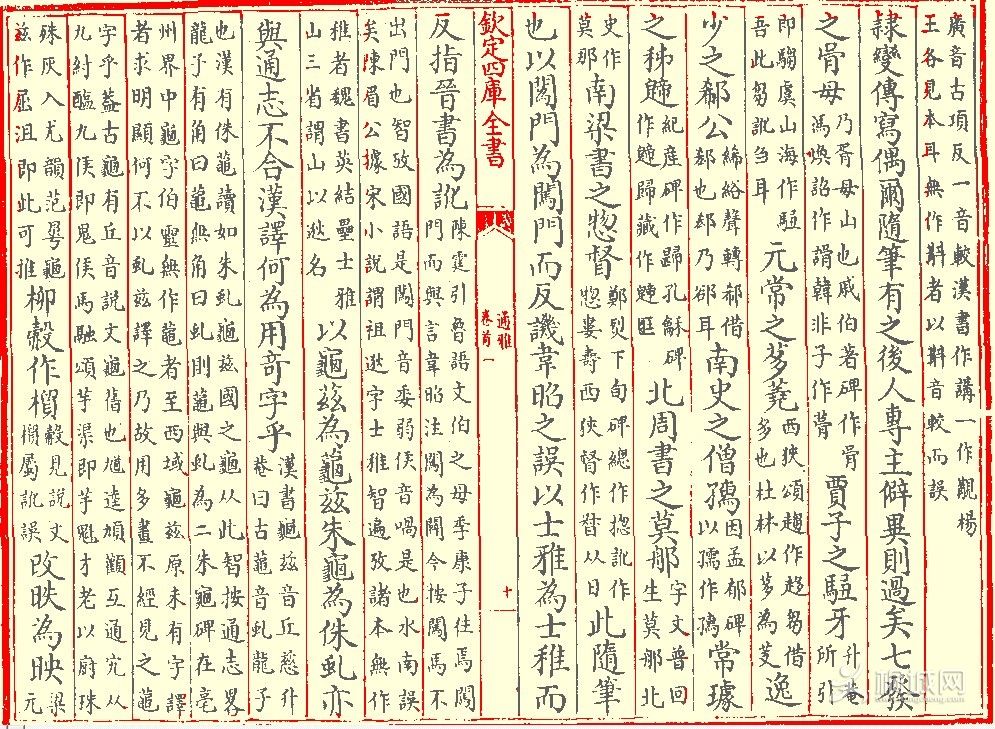 廣音古項反一音較漢書作講一作覯楊
王各見本耳無作斠者以斠音較而誤
隸變傳寫偶爾隨筆有之後人專主僻異則過矣七發
之骨母乃胥母山也戚伯著碑作骨馮煥詔作䛠韓非子作膋賈子之騶牙升菴所引
即騶虞山海作騶吾此芻訛刍耳元常之茤蕘西狹頌趨作趍芻借多也杜林以茤為芰逸
少之郗公絺綌聲轉郗借郄也郄乃郤耳南史之僧孺因孟郁碑以孺作常璩
之秭鶗紀産碑作歸孔龢碑作鶗歸藏作鶗北周書之莫那宇文普回生莫那北
史作莫那南梁書之惣督鄭烈下旬碑總作揔訛作惣婁壽西狹督作㫾从日此隨筆
也以闖門為闖門而反譏韋昭之誤以士雅為士稚而
欽定四庫全書
通雅
卷首一
十
反指晉書為訛陳霆引魯語文伯之母季康子往焉闖門而與言韋昭注闖為闢今按闖焉不
出門也智攷國語是闖門音委弱侯音喎是也水南誤矣陳眉公據宋小說謂祖逖字士稚智遍攷諸本無作
稚者魏書英結壘士雅山三省謂山以逖名以龜兹為龜兹朱龜為侏虬亦
與通志不合漢譯何為用竒字乎漢書龜兹音丘慈升菴曰古蘢音虬龍子
也漢有侏蘢讀如朱虬龜兹國之龜从此智按通志畧龍子有角曰蘢無角曰虬則蘢與虬為二朱龜碑在亳
州界中龜字伯靈無作蘢者至西域龜兹原未有字譯者求明顯何不以虬兹譯之乃故用多畫不經見之蘢
字乎蓋古龜有丘音説文龜舊也馗逵頄顴互通宄从九紂醢九侯即鬼侯馬融頌芋渠即芋魁才老以廚珠
殊灰入尤韻范曄龜兹作屈沮即此可推柳榖作檟榖見説文檟屬訛誤改昳為映梁元